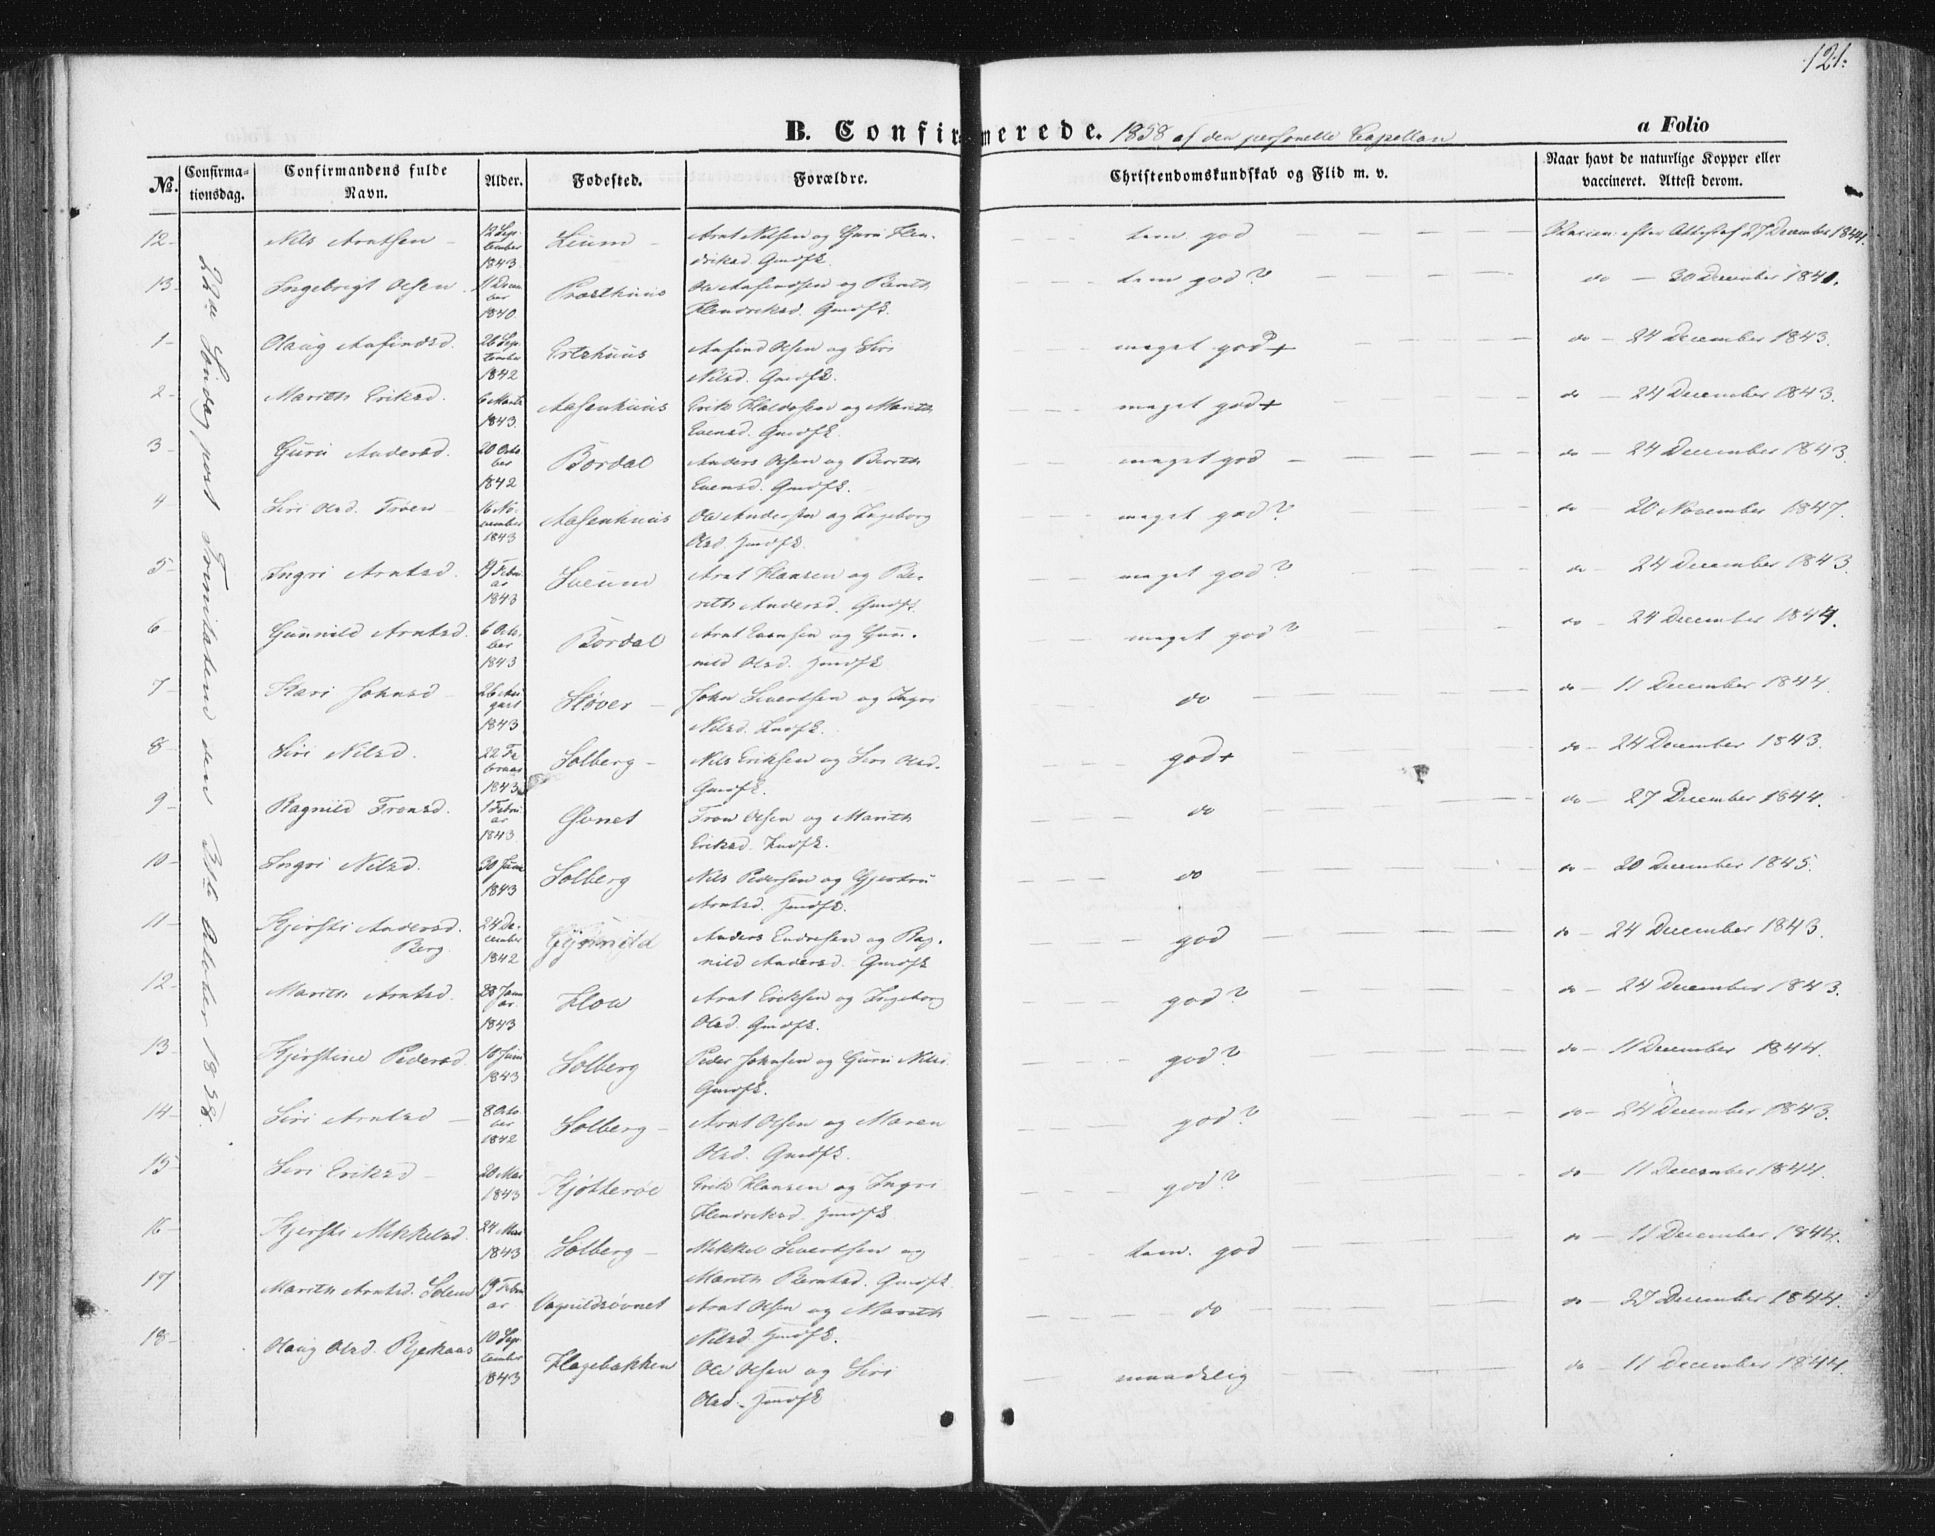 121.
B. Confirmerede. 1858 af den personelle Capellan
a Folio
No.
Confirmationsdag.
Confirmandens fulde Navn.
Alder.
Fødested.
Forældre.
Christendomskundskab og Flid m. v.
Naar havt de naturlige Kopper eller vaccineret. Attest derom.
22de Søndag post Trinitatem den 31te October 1858.
12 Nils Arntsen 12 September 1843 Lium Arnt Nilsen og Guru Hendriksd. Gmdfk. tem. god Vaccin. efter Attest af 27 December 1844.
13 Ingebrigt Olsen 11 December 1840 Præsthuus Ole Aafindsen og Berith Hendriksd. Gmdfk. tem god? do 30 December 1841.
1 Olaug Aafindsd. 26 September 1842 Ertshuus Aafind Olsen og Siri Nilsd. Gmdfk. meget god+ do 24 December 1843.
2 Marith Eriksd. 6 Marts 1843 Aasenhuus Erik Haldosen og Marith Evensd. Gmdfk. meget god+ do 24 December 1843.
3 Guru Andersd. 20 October 1842 Bordal Anders Olsen og Berith Evensd. Gmdfk. meget god do 24 December 1843.
4 Siri Olsd. Trøen 16 November 1843 Aasenhuus Ole Andersen og Ingeborg Olsd. Hmdfk. meget god? do 20 November 1847.
5 Ingri Arntsd. 19 Februar 1843 Sveum Arnt Hansen og Berith Andersd. Gmdfk. meget god? do 24 December 1843
6 Gunnild Arntsd. 6 October 1843 Bordal Arnt Evensen og Gunnild Olsd. Hmdfk. meget god? do 24 December 1844.
7 Kari Johnsd 26 August 1843 Støver John Sivertsen og Ingri Nilsd. Hmdfk. do do 11 December 1844.
8 Siri Nilsd. 22 Februar 1843 Solberg Nils Eriksen og Siri Olsd. Gmdfk. god+ do 24 December 1843.
9 Ragnild Tronsd. 1 Februar 1843 Øvnet Tron Olsen og Marith Eriksd. Hmdfk. do do 27 December 1844.
10 Ingri Nilsd. 30 Juni 1843 Solberg Nils Pedersen og Gjertru Arntsd. Hmdfk. do do 20 December 1845.
11 Kjersti Andersd. Berg. 24 December 1842 Gynnild Anders Endresen og Ragnild Andersd. Gmdfk god do 24 December 1843.
12 Marith Arntsd. 23 Januar 1843 Hov Arnt Eriksen og Ingeborg Olsd. Gmdfk. god? do 24 December 1843.
13 Kjerstine Pedersd. 16 Juni 1843 Solberg Peder Johnsen og Guru Nilsd. Gmdfk. god? do 11 December 1844.
14 Siri Arntsd 8 October 1842 Solberg Arnt Olsen og Maren Olsd. Gmdfk. god? do 24 December 1843.
15 Siri Eriksd 20 Mai 1843 Kjøtterøe Erik Hansen og Ingri Hendriksd. Hmdfk god? do 11 December 1844.
16 Kjersti Mikkelsd. 24 Mai 1843 Solberg Mikkel Sivertsen og Marith Berntsd. Gmdfk tem. god do 11 December 1844.
17 Marith Arntsd. Solem 19 Februar Vognildsøvnet Arnt Olsen og Marith Nilsd. Hmdfk. do do 27 December 1844.
18 Olaug Olsd. Bjerkaas 10 September 1843 Hagebakken Ole Olsen og Siri Olsd. Hmdfk maadelig do 11 December 1844.